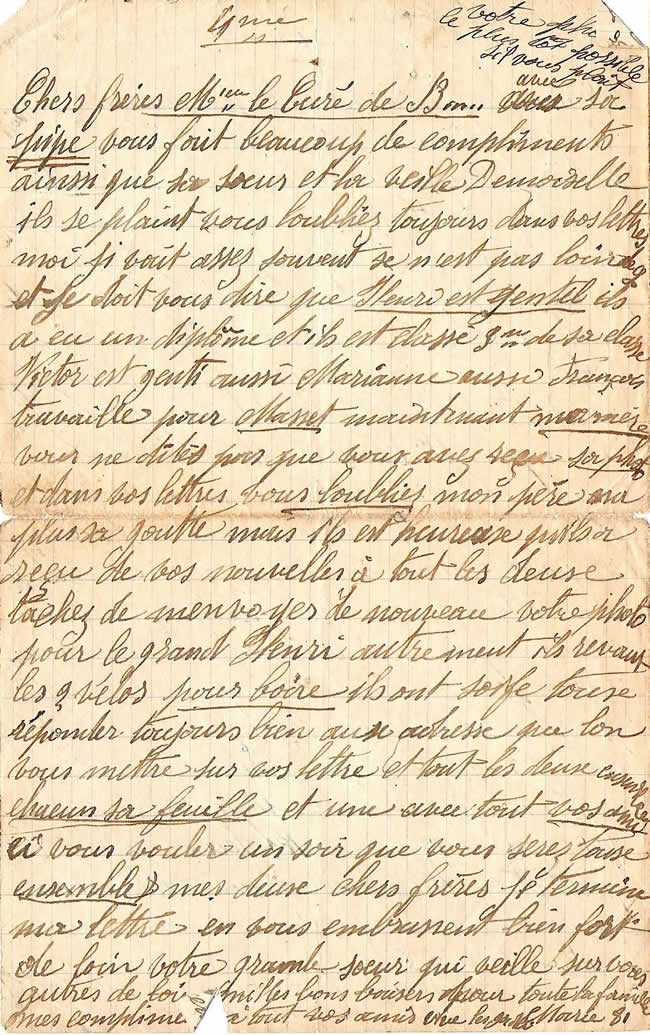 4me
votre pho
le plus tot possible
sil vous plait
avec
Chers frères Mr le Curé de B.... sa
pipe vous fait beaucoup de compliments
ainsi que sa sœur et la veille Demoiselle
ils se plaint vous loubliez toujours dans vos lettres
moi ji vait assez souvent se n'est pas loin
et Je doit vous dire que Henri est gentil ils
a eu un diplôme et ils est classé 3me de sa classe
Victor est genti aussi Marianne aussi François
travaille pour Masset maintenant ma mère
vous ne dites pas que vous avez reçu sa photo
et dans vos lettres vous loubliez mon père na
plus sa goutte mais ils est heureuse quils a
reçu de vos nouvelles à tout les deuse
tachez de menvoyer de nouveau votre photo
pour le grand Henri autrement ils revaut
les vélos pour boire ils ont soife touse
réponder toujours bien aux adresse que lon
vous mettre sur vos lettre et tout les deuse
chacun sa feuille et une avec tout vos ami
ci vous vouler un soir que vous serez touse
ensemble mes deuse chers frères je termine
ma lettre en vous embrassent bien fort
de loin votre grande sœur qui veille sur vous
autres de loi milles bons baisers pour toute la famille
mes complime à tout vos amis Marie